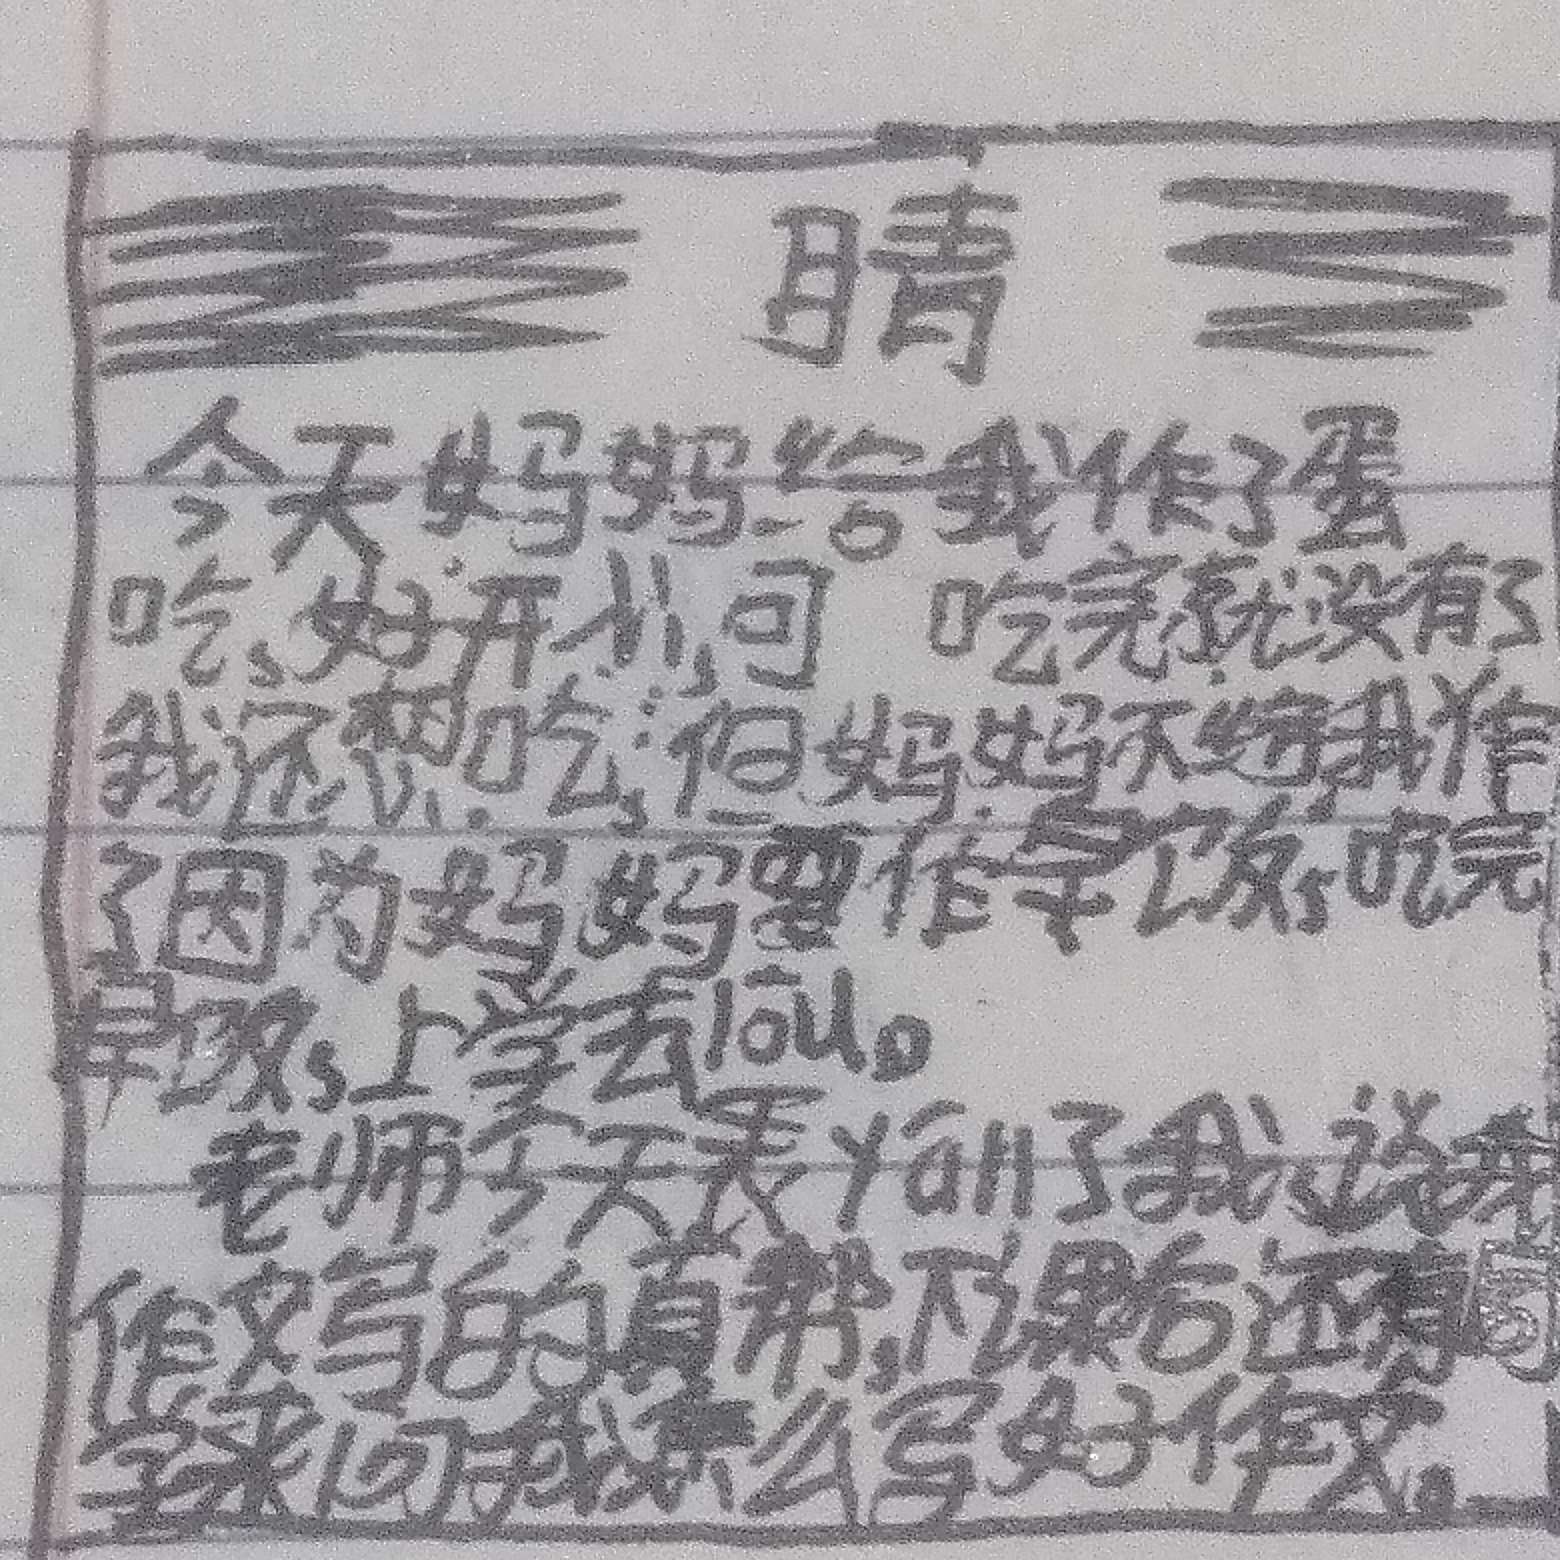 晴
今天妈妈给我作了蛋
吃,好开心,可 吃完就没有了
我还想吃,但妈妈不给我作
了因为妈妈要作早饭,吃完
早饭,上学去lou。
老师今天表yáng了我,说我
作文写的真帮,下课后还有
学来问我怎么写好作文。